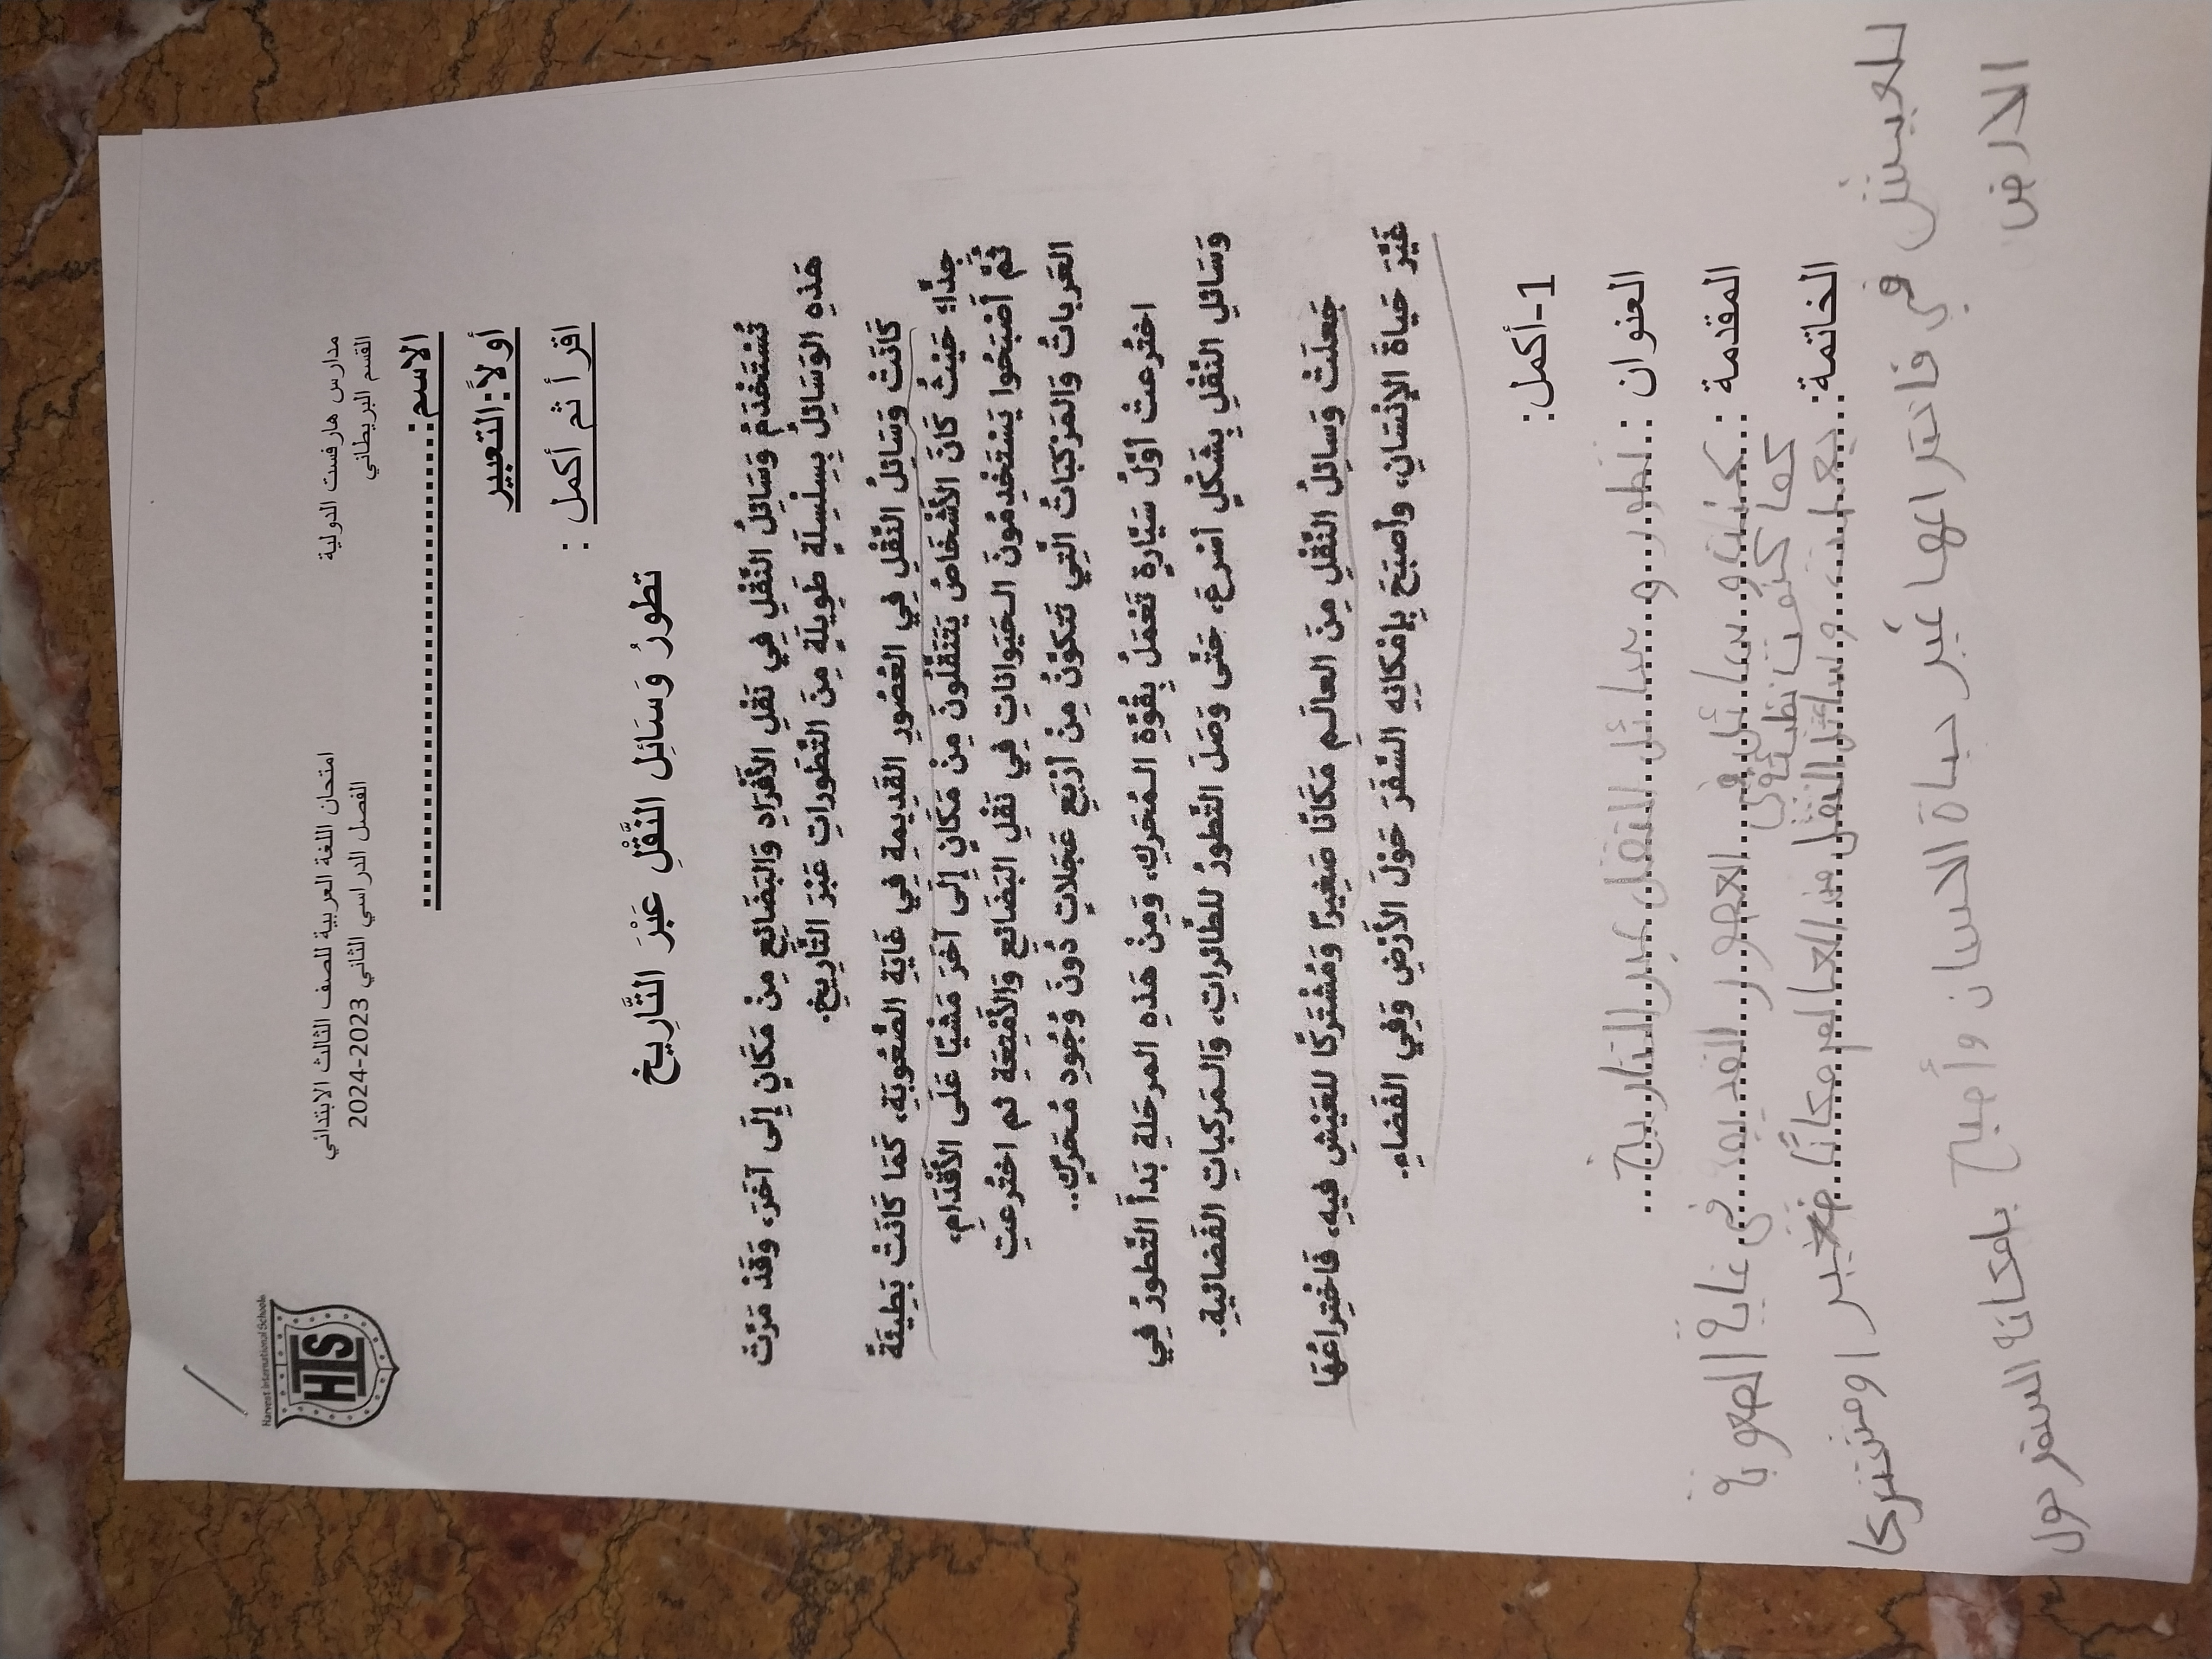 Harvest International Schools
HIS
مدارس هارفست الدولية
القسم البريطاني
امتحان اللغة العربية للصف الثالث الابتدائي
الفصل الدراسي الثاني 2023-2024
الاسم:............................
أولاً:التعبير
اقرأ ثم أكمل :
تطورُ وَسَائِلِ النَّقْلِ عَبْرَ التَّارِيخِ
تُسْتَخْدَمُ وَسَائِلُ النَّقْلِ فِي نَقْلِ الأَفْرَادِ وَالبَضَائِعِ مِنْ مَكَانٍ إِلَى آخَرَ، وَقَدْ مَرَّتْ
هَذِهِ الوَسَائِلُ بِسِلْسِلَةٍ طَوِيلَةٍ مِنَ التَّطَورَاتِ عَبْرَ التَّارِيخِ.
كَانَتْ وَسَائِلُ النَّقْلِ فِي العُصُورِ القَدِيمَةِ فِي غَايَةِ الصُّعُوبَةِ، كَمَا كَانَتْ بَطِيئَةً
جِدًّا؛ حَيْثُ كَانَ الأَشْخَاصُ يَتَنَقَّلُونَ مِنْ مَكَانٍ إِلَى آخَرَ مَشْيًا عَلَى الأَقْدَامِ،
ثُمَّ أَصْبَحُوا يَسْتَخْدِمُونَ الحَيَوَانَاتِ فِي نَقْلِ البَضَائِعِ وَالأَمْتِعَةِ ثم اخْتُرِعَتِ
العَرَبَاتُ وَالمَرْكَبَاتُ الَّتِي تَتَكَوَّنُ مِنْ أَرْبَعِ عَجَلَاتٍ دُونَ وُجُودِ مُحَرِّكٍ..
اخْتُرِعَتْ أَوَّلُ سَيَّارَةٍ تَعْمَلُ بِقُوَّةِ المُحَرِّكِ، وَمِنْ هَذِهِ المرحَلَةِ بَدَأَ التَّطَورُ فِي
وَسَائِلِ النَّقْلِ بِشَكْلٍ أَسْرَعَ، حَتَّى وَصَلَ التَّطَورُ للطَّائِرَاتِ، وَالمَركبَاتِ الفَضَائِيةِ.
جَعلَتْ وَسَائِلُ النَّقْلِ مِنَ العَالَمِ مَكَانًا صَغِيرًا وَمُشْتَرَكًا للعَيْشِ فِيهِ، فَاخْتِرَاعُهَا
غَيَّرَ حَيَاةَ الإِنْسَانِ، وأَصبَحَ بِإِمْكَانِهِ السَّفَرَ حَوْلَ الأَرْضِ وَفِي الفَضَاءِ.
1-أكمل:
العنوان : تطور وسائل النقل عبر التاريخ
المقدمة : كنت وسائل في العصور القديمة في غاية الصعوبة
كما كنت بطيئة
الخاتمة: جعلت وسائل النقل من العالم مكانًا صغيرا ومشتركا
للعيش في فاختراعها غير حياة الانسان وأصبح بامكانه السفر حول
الارض